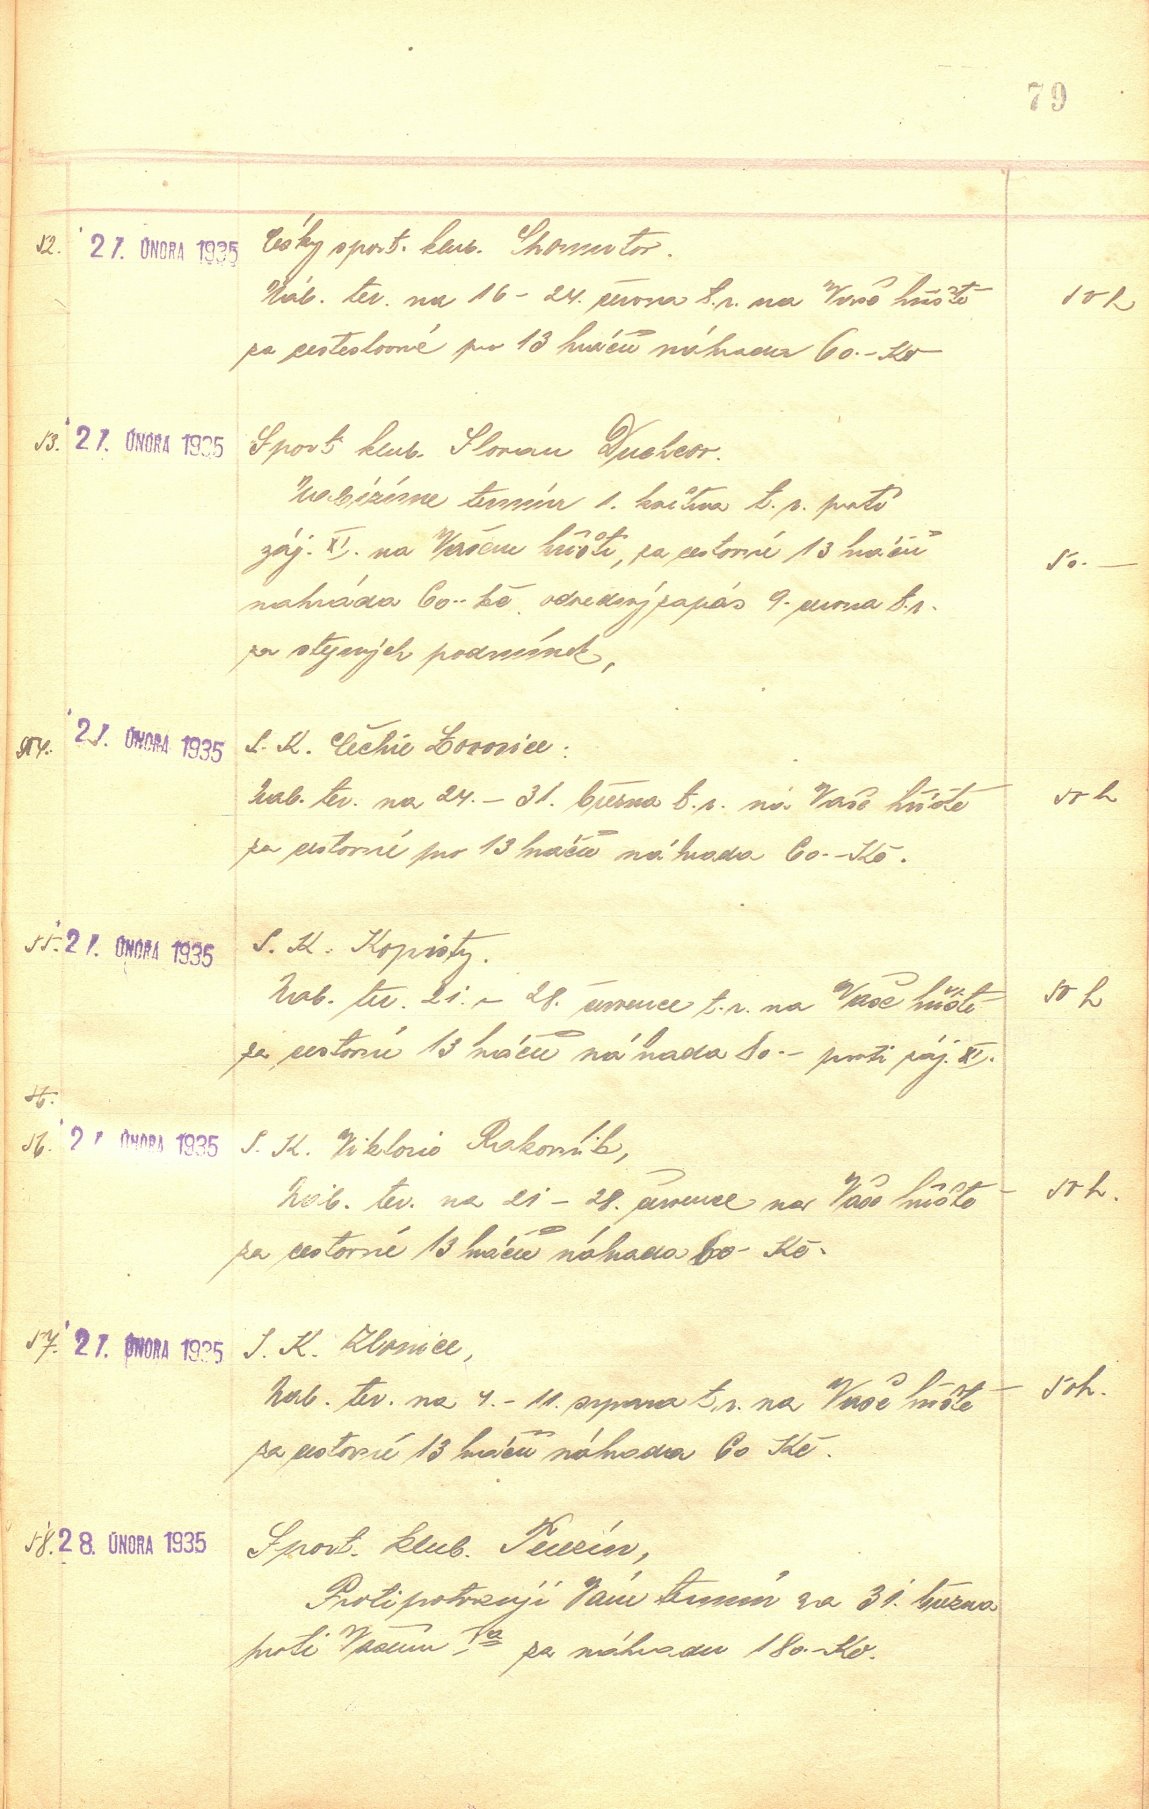 79
52. 27. ÚNORA 1935 Český sport. klub. Chomutov.
Nab. ter. na 16 - 24. června t.r. na Vaše hřiště 50 h
za cestovné pro 13 hráčů náhrada 60.- Kč
53. 27. ÚNORA 1935 Sport klub. Slovan Duchcov.
Nabízíme termín 1. května t. r. proti
záj. XI. na Vašem hřišti, za cestovné 13 hráčů 50.-
nahráda 60.- Kč. odvedný zápas 9. června t.r.
za stejných podmínek,
54. 27. ÚNORA 1935 S. K. Čechie Lovosice:
Nab. ter. na 24. - 31. března t. r. na Vaše hřiště 50 h
za cestovné pro 13 hráčů náhrada 60.- Kč.
55. 27. ÚNORA 1935 S. K. Kopisty.
Nab. ter. 21. - 28. července t. r. na Vaše hřiště 50 h
za cestovné 13 hráčů náhrada 80.- proti záj. XI.
56. 27. ÚNORA 1935 S. K. Viktorie Rakovník,
Nab. ter. na 21 - 28. července na Vaše hřiště 50 h.
za cestovné 13 hráčů náhrada 60- Kč.
57. 27. ÚNORA 1935 S. K. Zlonice,
Nab. ter. na 4. - 11. srpna t. r. na Vaše hřiště 50 h.
za cestovné 13 hráčů náhrada 60 Kč.
58. 28. ÚNORA 1935 Sport. klub. Terezín,
Protipotvrzuji Vám termín na 31. března
proti Vašemu Ia za náhradu 180.- Kč.